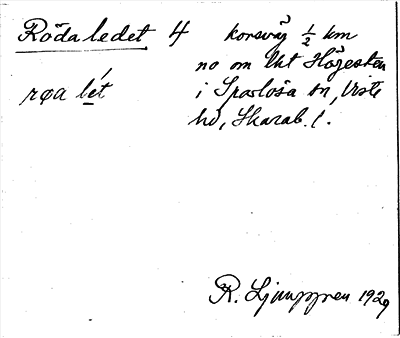 Röda ledet 4 korsväg ½ km
no om lht Högesten
røa lét i Sparlösa sn, Viste
hd, Skarab. l.
R. Ljunggren 1929